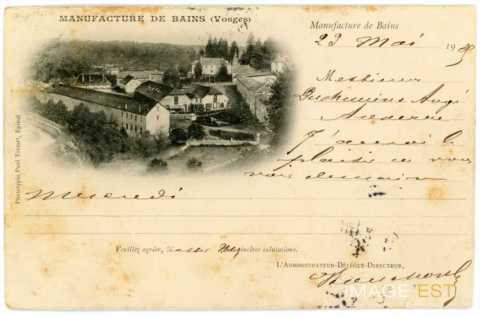 MANUFACTURE DE BAINS (Vosges)
Manufacture de Bains
23 Mai 19
Messieurs
J'aurai le
plaisir de vous
voir demain
mercredi
Phototypie Paul Testart, Epinal
Veuillez agréer, salutations.
L'ADMINISTRATEUR-DÉLÉGUÉ-DIRECTEUR,
IMAGE'EST